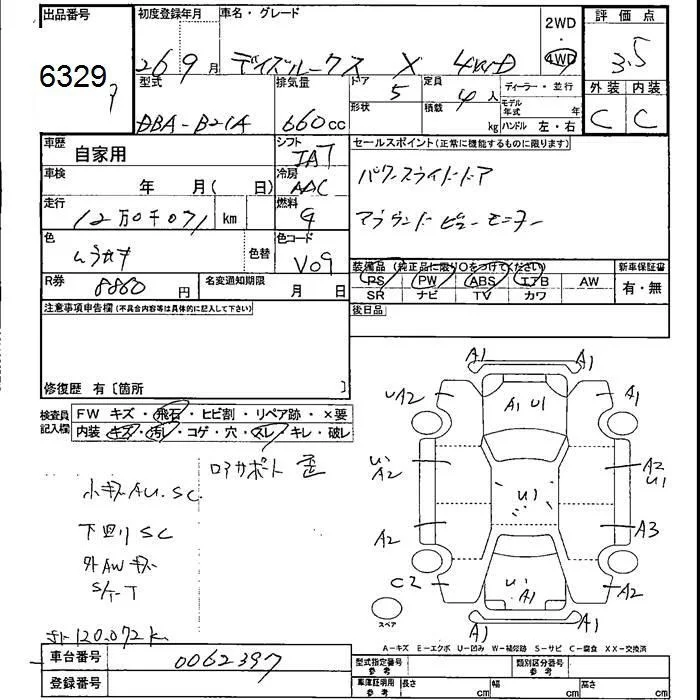 出品番号
6329
初度登録年月
26 9月
車名・グレード
デイズルークス X 4WD
2WD
・
4WD
評価点
3.5
外装 内装
C C
型式
DBA-B21A
排気量
660cc
ドア
5
定員
4人
ディーラー・並行
形状
積載
kg
モデル年式 年
ハンドル 左・右
車歴
自家用
シフト
IAT
セールスポイント(正常に機能するものに限ります)
パワースライドドア
アラウンドビューモニター
車検
年 月( 日)
冷房
AAC
走行
12万0千071 km
燃料
色
色替
色コード
V09
装備品 (純正品に限り○をつけてください)
新車保証書
PS PW ABS エアB AW
有・無
SR ナビ TV カワ
R券
8860円
名変通知期限
月 日
後日品
注意事項申告欄(不具合内容等は具体的に記入して下さい)
修復歴 有[箇所 ]
検査員記入欄
FW キズ・飛石・ヒビ割・リペア跡・×要
内装 キズ・汚レ・コゲ・穴・スレ・キレ・破レ
ロアサポート 歪
小キズAU.SC
下回りSC
外AWキズ
S/T-T
120,072k
A1 A1
UA2 A1 U1 A1
U1 A2 A2 U1
U1
A2 A3
C2 U1 A1 A2
A1 A1
スペア
A-キズ E-エクボ U-凹み W-補修跡 S-サビ C-腐食 XX-交換済
車台番号
0062397
登録番号
型式指定番号 参考
類別区分番号 参考
車庫証明用 参考
長さ cm
幅 cm
高さ cm